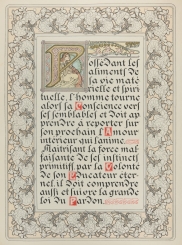 Possédant les
aliments de
sa vie maté
rielle et spiri-
tuelle, l'homme tourne
alors sa Conscience vers
ses semblables et Doit ap
prendre à reporter sur
son prochain l'Amour
intérieur qui l'anime.
Maîtrisant la force mal
faisante de ses instincts
primitifs par la Volonté
de son Educateur éter-
nel, il Doit comprendre
aussi et suivre la grande
loi du Pardon.